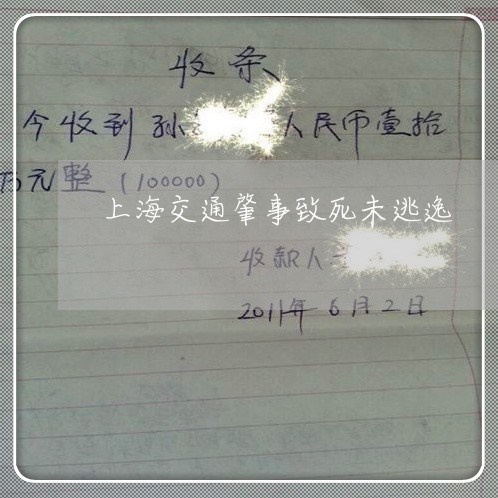 收条
今收到孙 人民币壹拾
万元整(100000)
上海交通肇事致死未逃逸
收款人
2011年6月2日